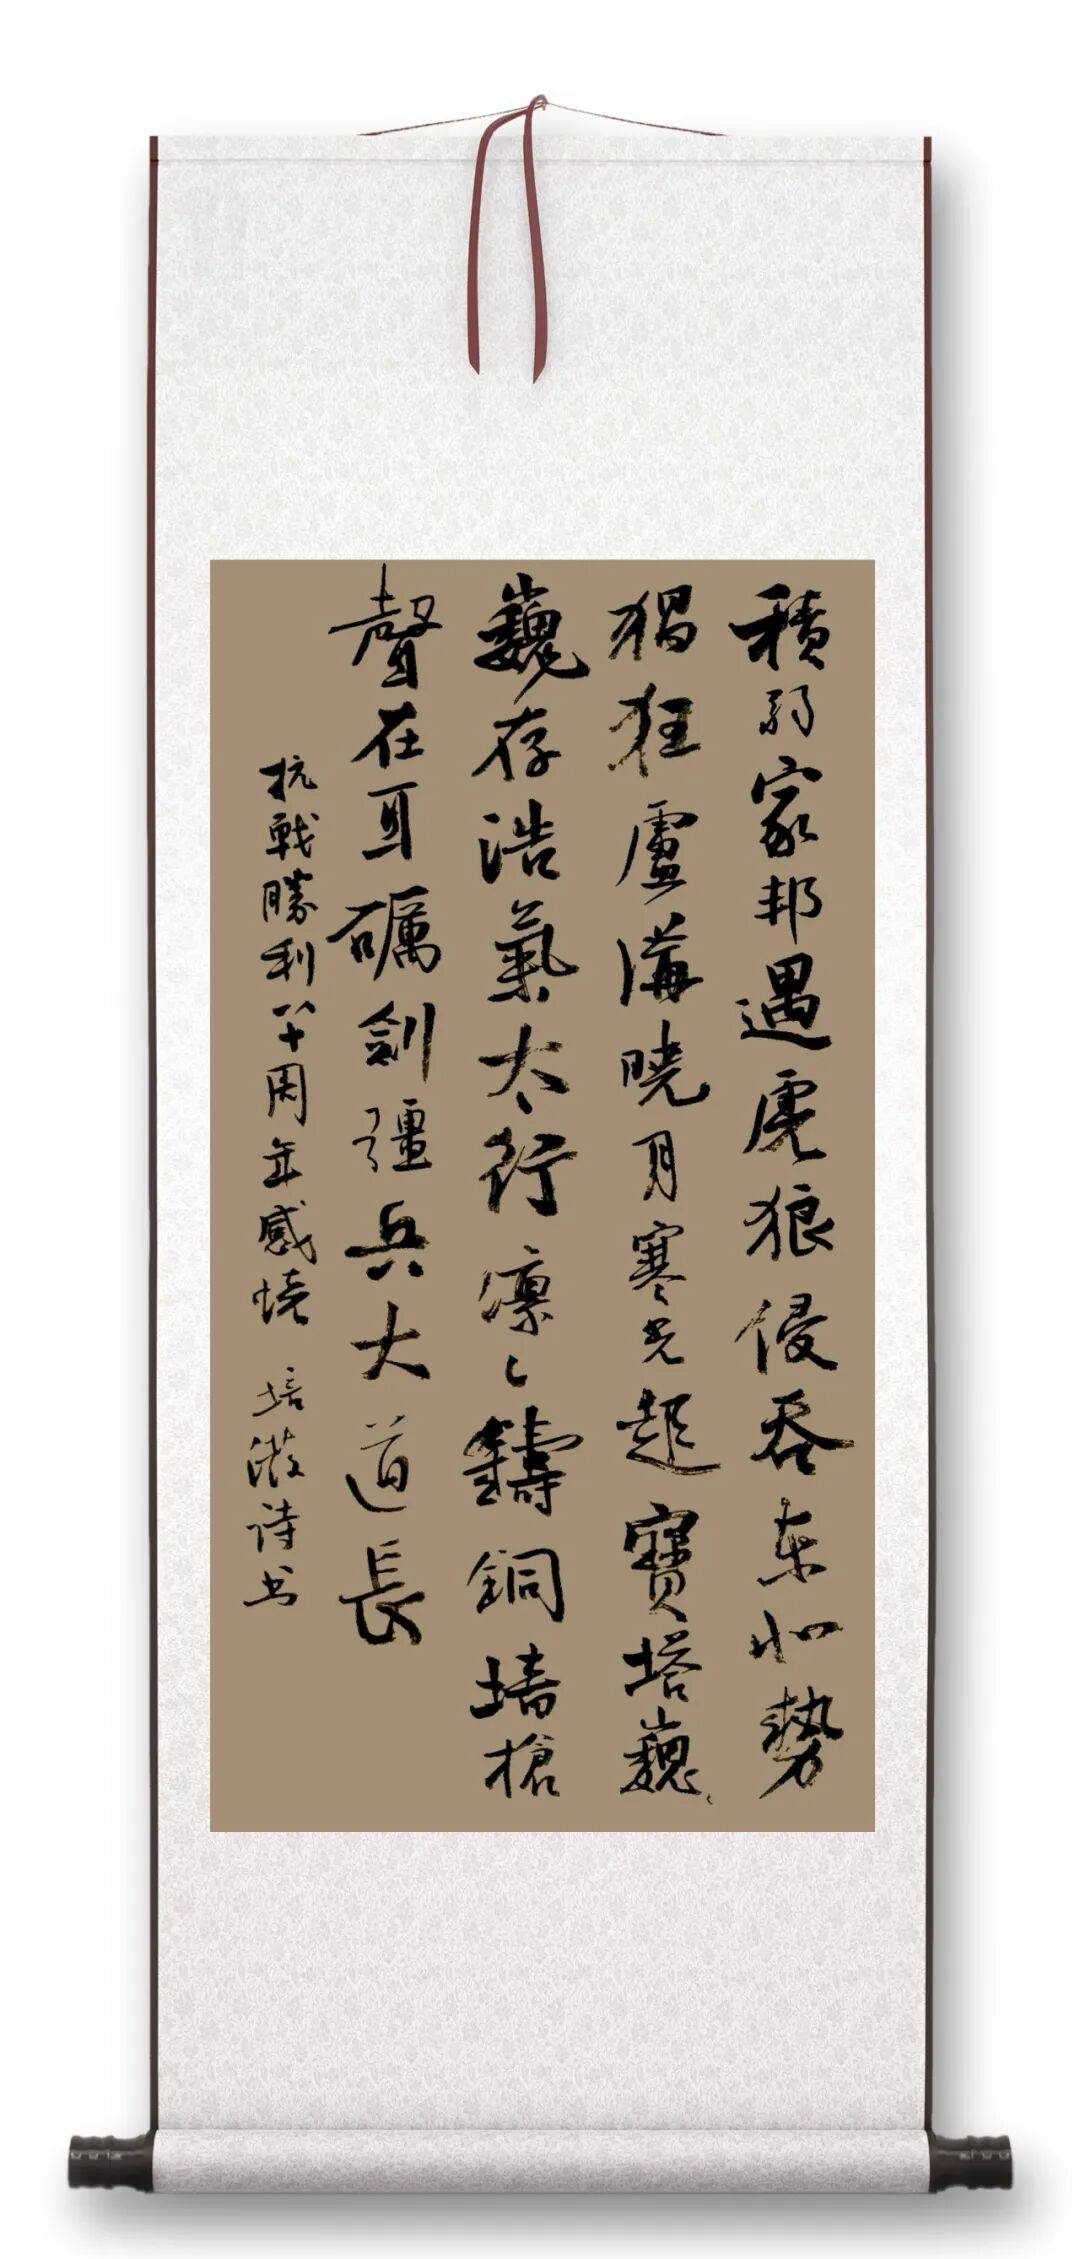 積弱家邦遇虎狼侵吞东北勢
猖狂盧溝曉月寒光起寶塔巍
巍存浩氣太行凛々鑄銅墙槍
聲在耳礪劍彊兵大道長
抗戰勝利八十周年感懷 培诗书